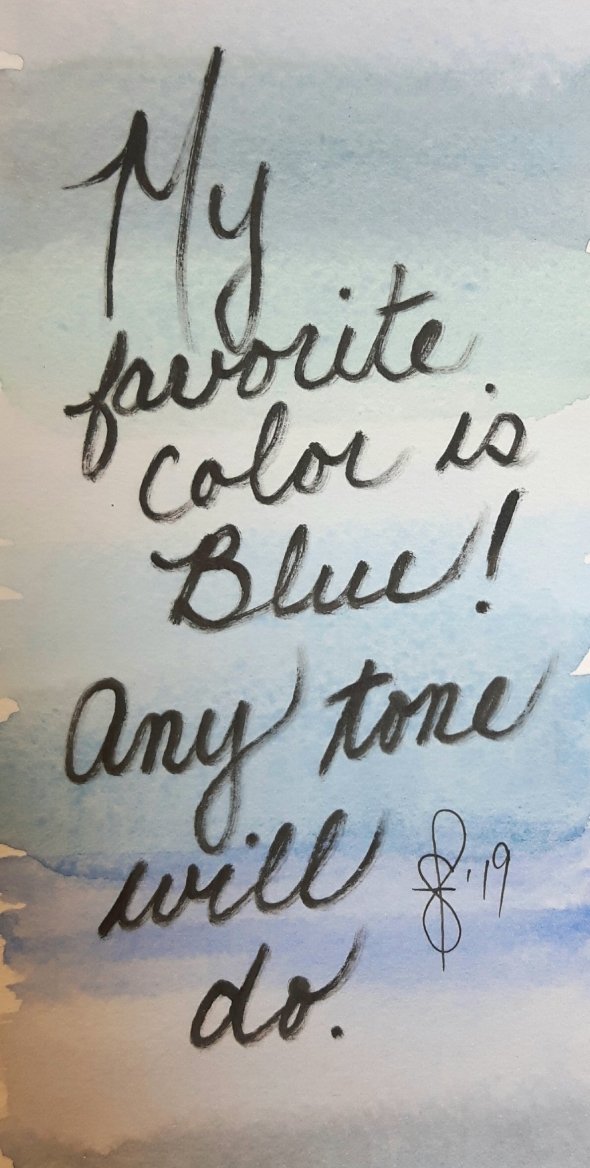 My
favorite
color is
Blue!
Any tone
will
do.
'19